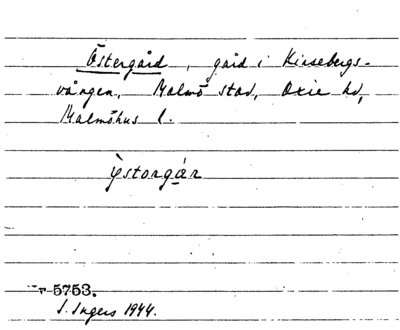 Östergård, gård i Kirsebergs-
vången, Malmö stad, Oxie hd,
Malmöhus l.
ỳstorgár
5753.
I. Ingers 1944.